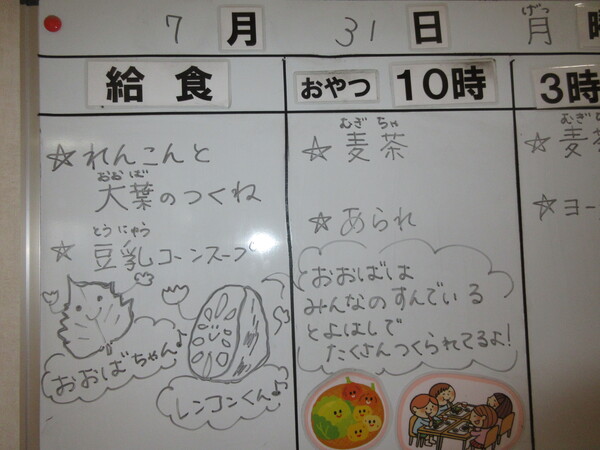 7月 31日 月
げっ
給食
おやつ 10時
3時
☆れんこんと
おおば
大葉のつくね
とうにゅう
☆豆乳コーンスープ
おおばちゃん♪
レンコンくん♪
むぎちゃ
☆麦茶
☆あられ
おおばは
みんなのすんでいる
とよはしで
たくさんつくられてるよ！
むぎ
☆麦茶
☆ヨー